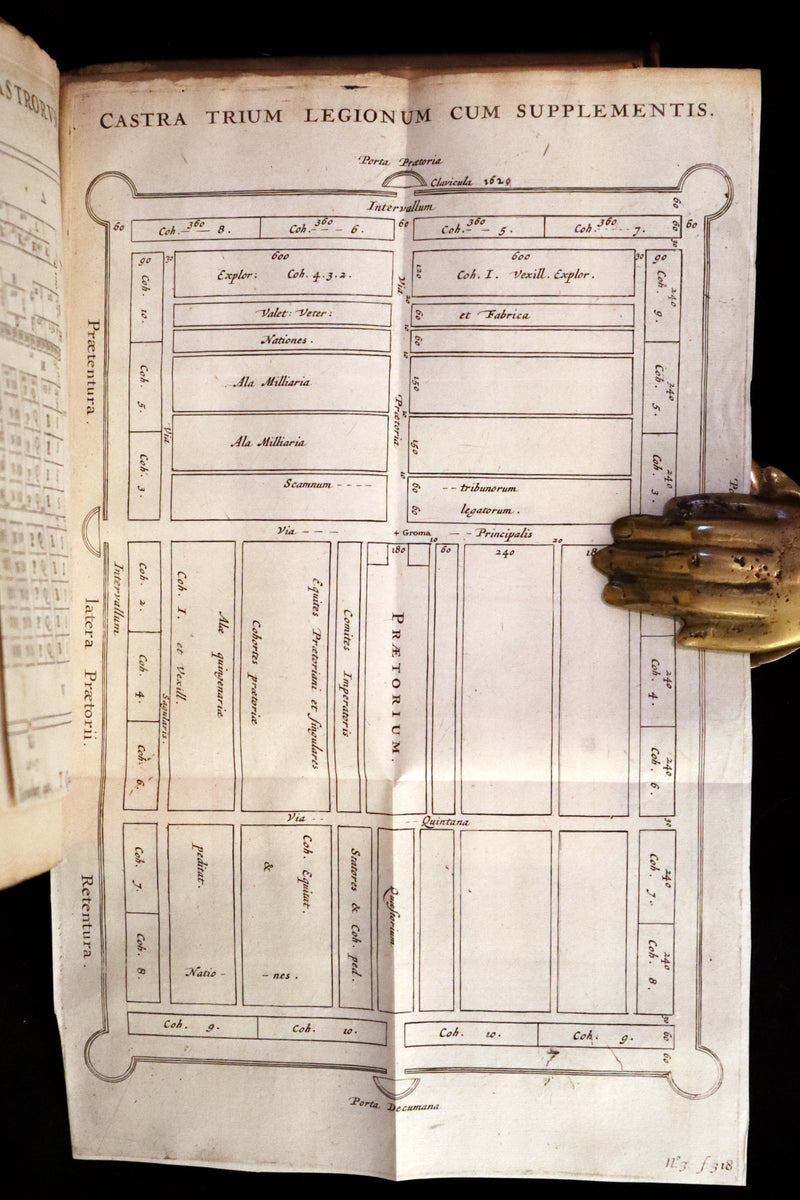 CASTRA TRIUM LEGIONUM CUM SUPPLEMENTIS.
Porta Prætoria
Clavicula 1620
Intervallum
60
60 Coh. 360 8. Coh. 360 6. 60 Coh. 360 5. Coh. 360 7. 60 60
30
90 30 600 600 30 90
Explor: Coh. 4.3.2. 120 Coh. I. Vexill. Explor.
Coh. 10. Coh. 9. 240
Via
Valet: Veter: 60 et Fabrica
Nationes. 60
Prætentura.
Coh. 5. Ala Milliaria 150 Coh. 5. 240
Prætoria
Via
Ala Milliaria 150
Coh. 3. Coh. 3. 240
Scamnum 60 tribunorum
60 legatorum.
Via + Groma Principalis
10 20
180 60 240
Intervallum
latera Prætorii.
Coh. 2.
Coh. I. et Vexill.
Alæ quingenariæ
Cohortes prætoriæ
Equites Prætoriani et singulares
Comites Imperatoris
PRÆTORIUM.
Coh. 4. Coh. 4. 240
Sagularis.
Coh. 6. Coh. 6. 240
Via Quintana 30
Retentura.
Coh. 7. Coh. 7. 240
peditat.
&
Coh. Equitat.
Statores & Coh. ped.
Quæstorium
Coh. 8. Coh. 8. 240
Natio - - nes.
30
Coh. 9. Coh. 10. Coh. 10. Coh. 9. 60
60
Porta Decumana
N.º 3 f 318